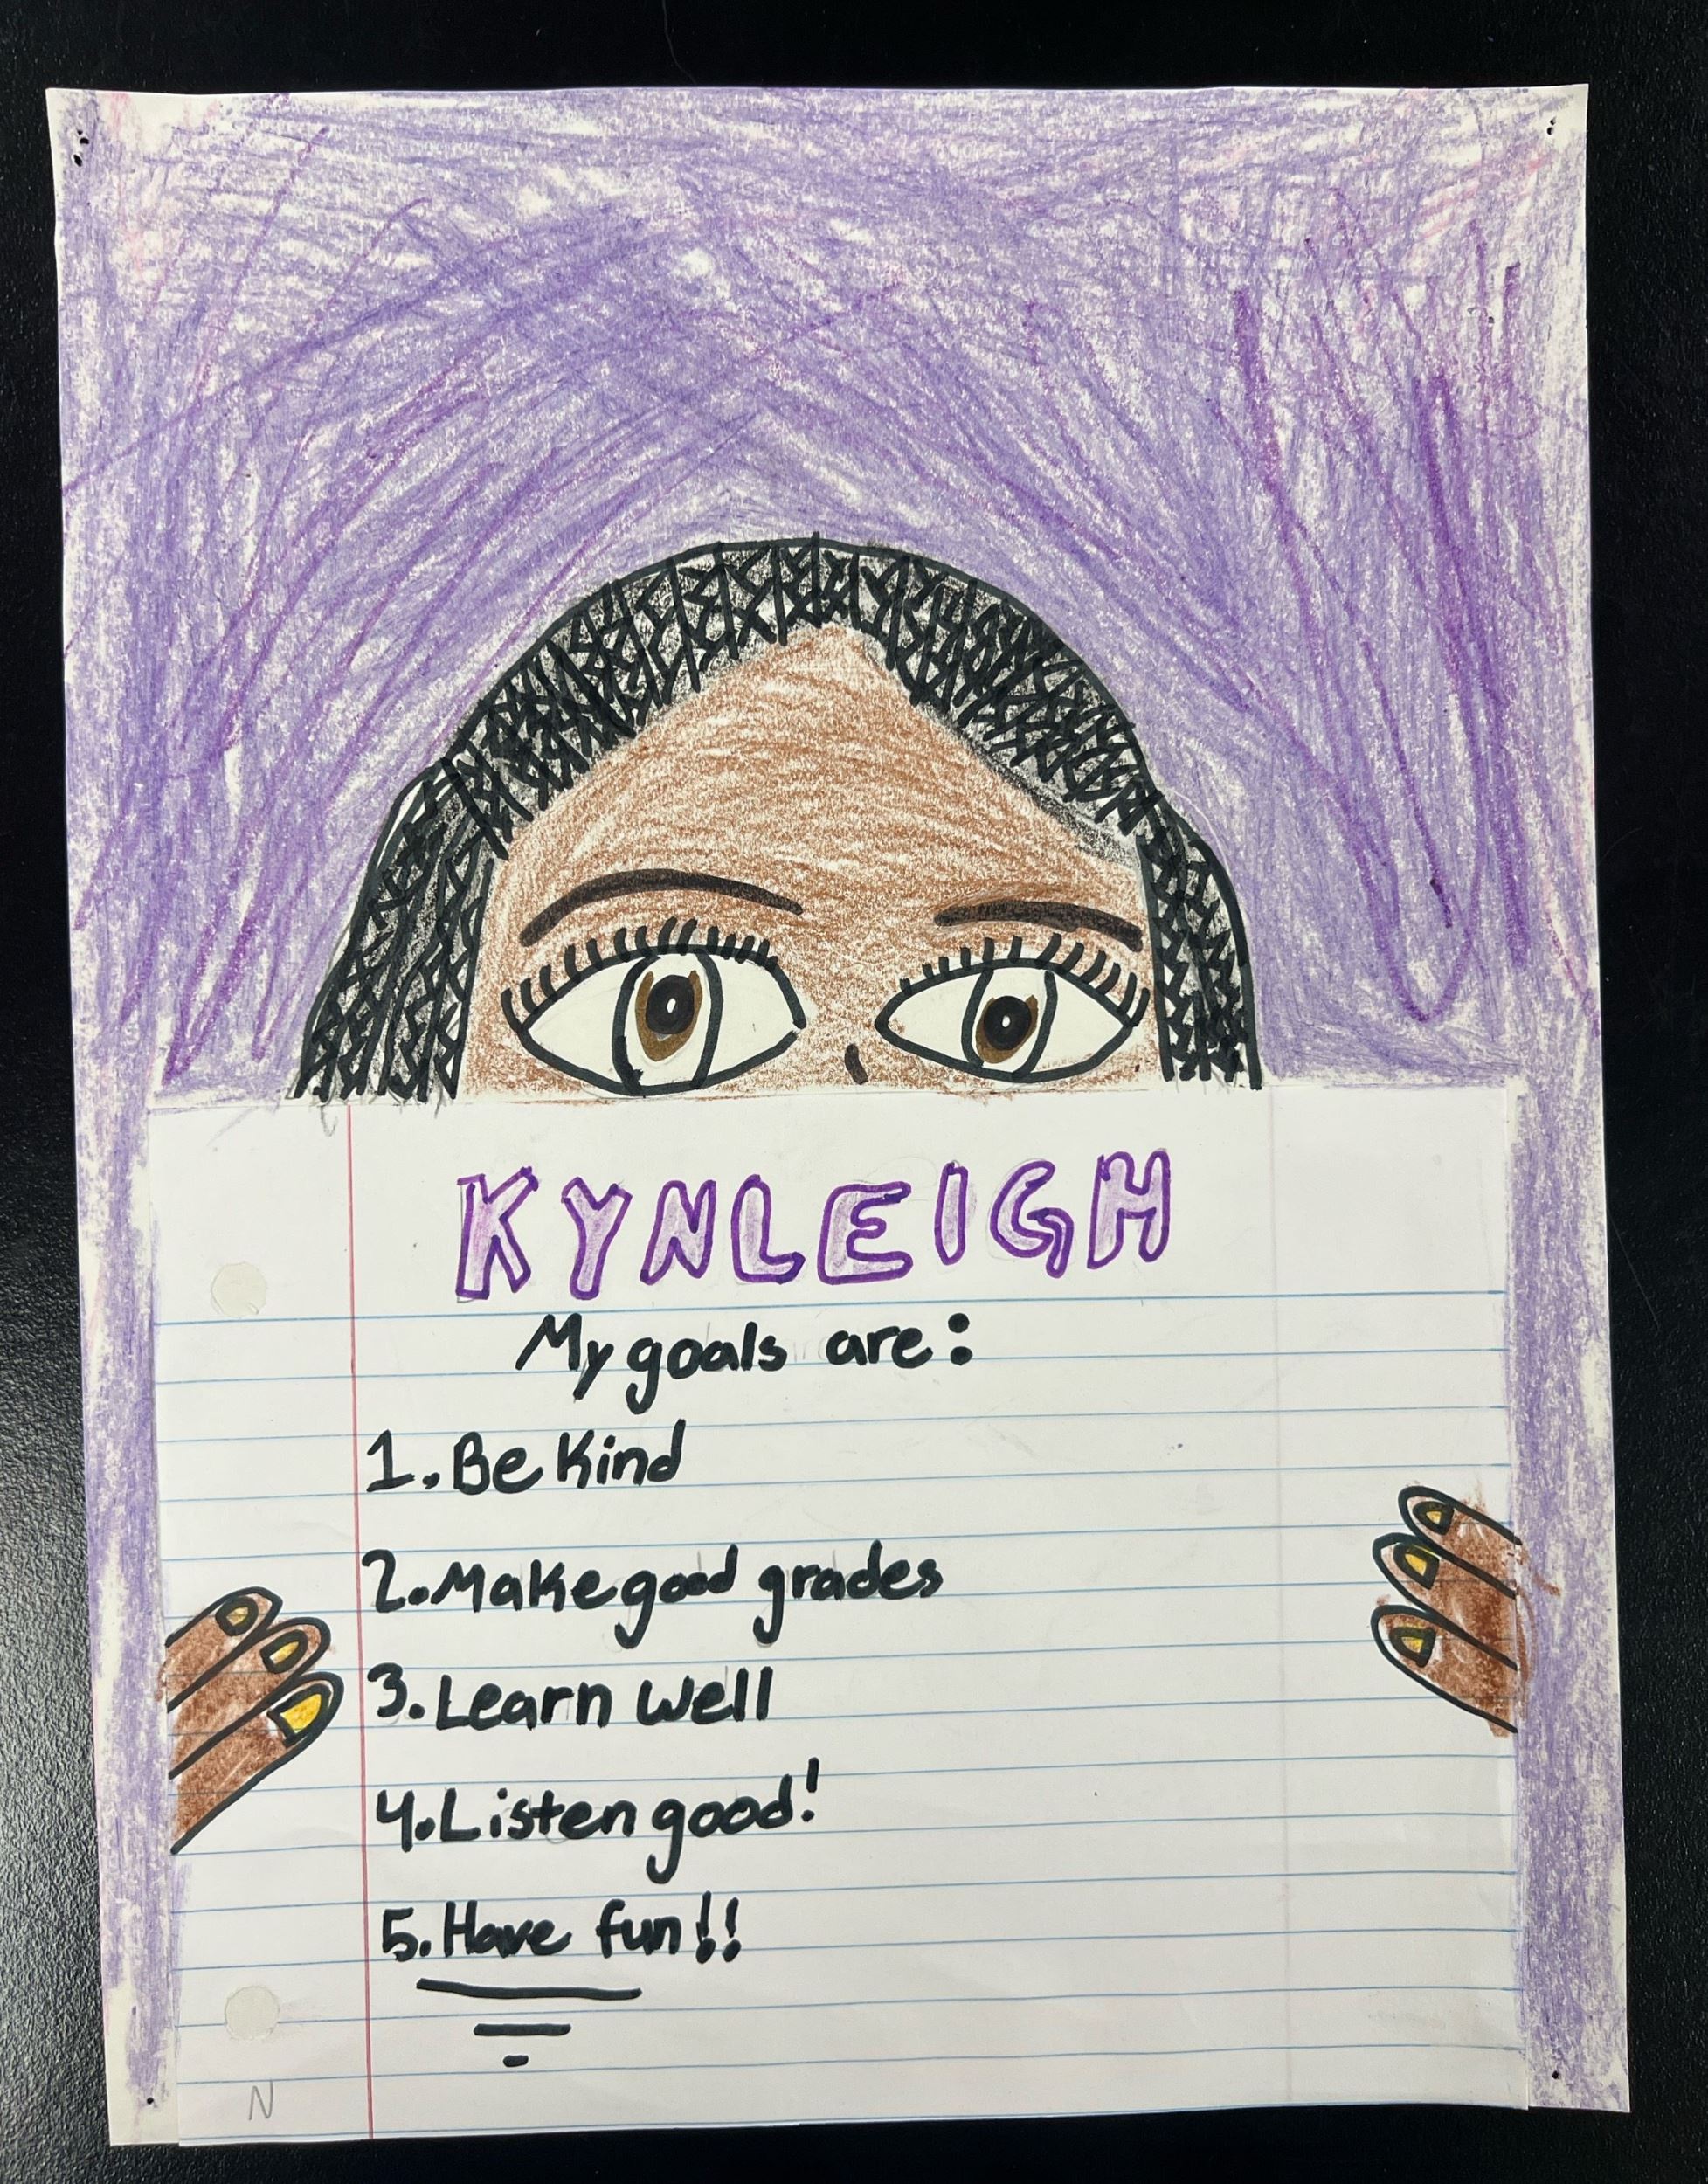 KYNLEIGH
My goals are:
1. Be Kind
2. Make good grades
3. Learn well
4. Listen good!
5. Have fun!!
N